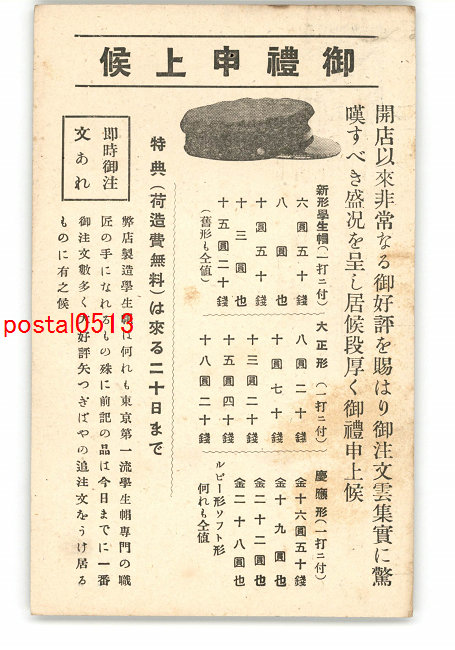 御禮申上候
開店以來非常なる御好評を賜はり御注文雲集實に驚
嘆すべき盛況を呈し居候段厚く御禮申上候
新形學生帽(一打ニ付)
六圓五十錢
八圓也
十圓五十錢
十三圓也
十五圓二十錢
(舊形も仝値)
大正形(一打ニ付)
八圓二十錢
十圓七十錢
十三圓二十錢
十五圓四十錢
十八圓二十錢
慶應形(一打ニ付)
金十六圓五十錢
金十九圓也
金二十二圓也
金二十八圓也
ルビー形ソフト形
何れも仝値
特典(荷造費無料)は來る二十日まで
即時御注
文あれ
弊店製造學生帽は何れも東京第一流學生帽專門の職
匠の手になれるもの殊に前記の品は今日までに一番
御注文數多く好評矢つぎばやの追注文をうけ居る
ものに有之候
postal0513